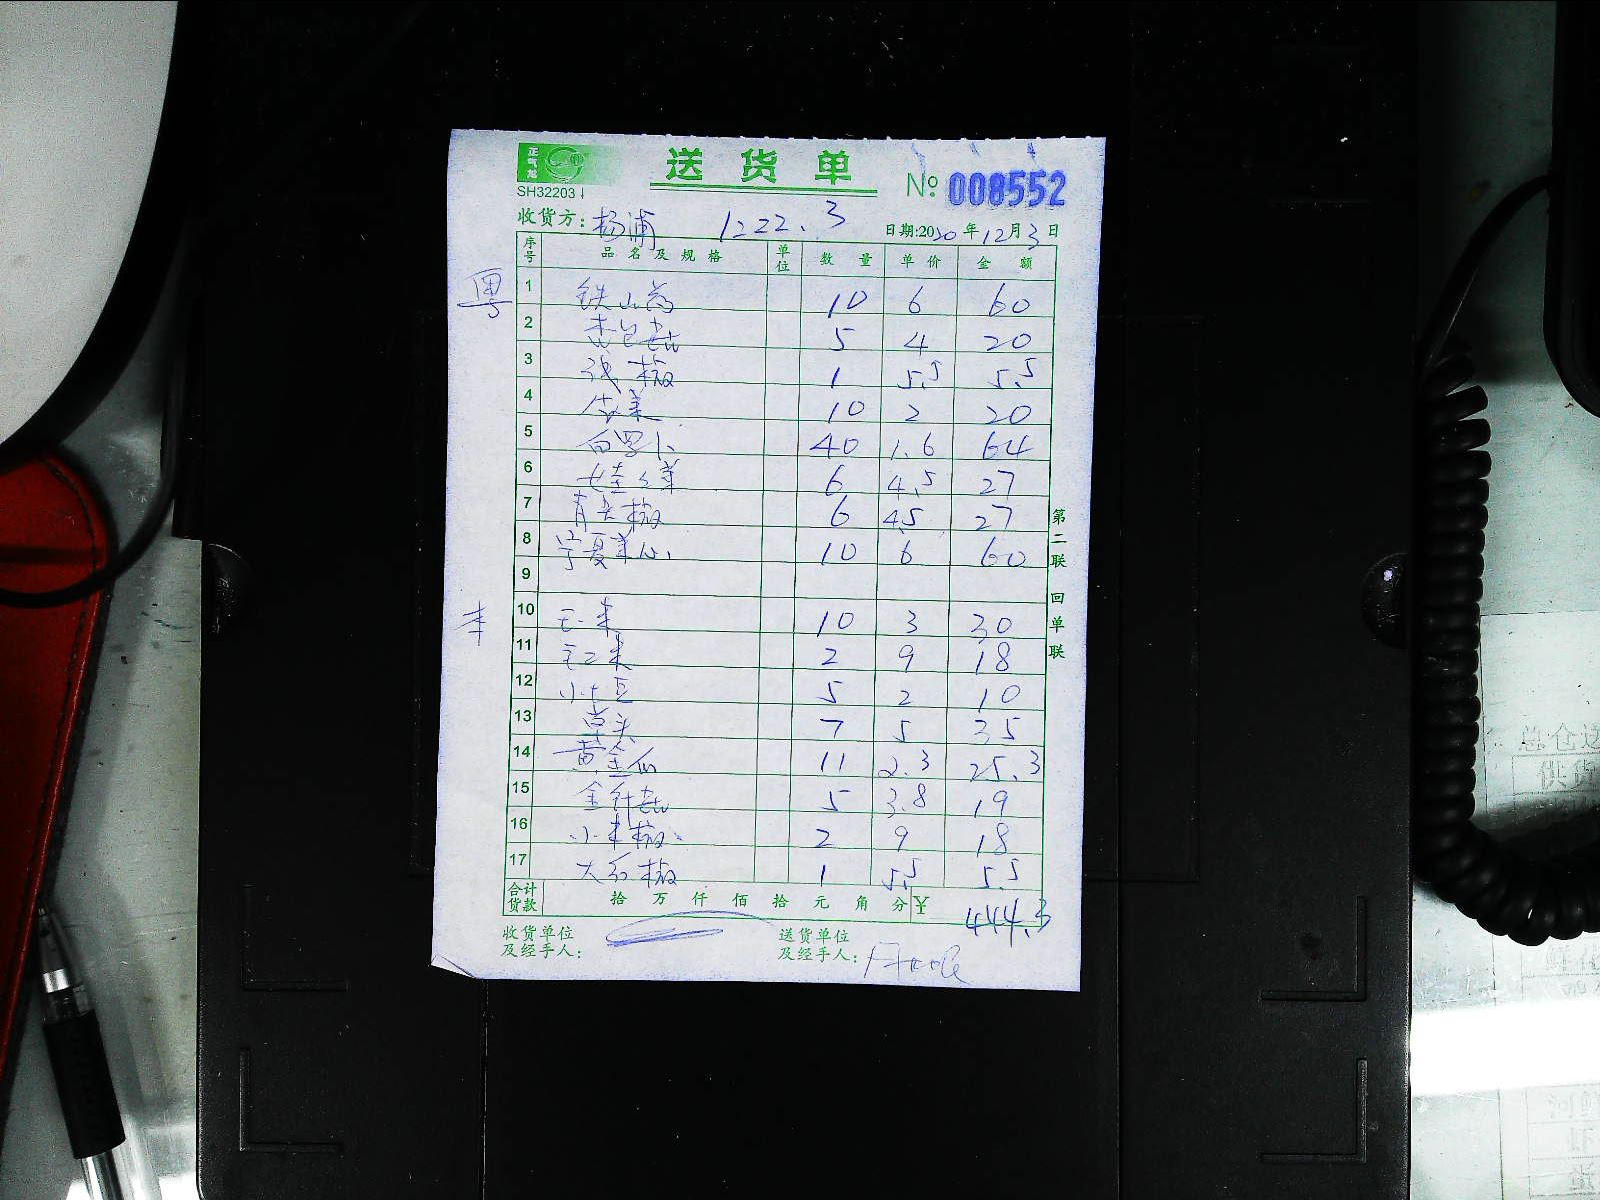 正气旭
SH32203
送货单 № 008552
收货方：杨浦 1222.3 日期:2020年12月3日
序号 品名及规格 单位 数量 单价 金额
粤
1 铁山药 10 6 60
2 杏包菇 5 4 20
3 线椒 1 5.5 5.5
4 10 2 20
5 白罗卜 40 1.6 64
6 娃娃菜 6 4.5 27
7 青尖椒 6 4.5 27
8 宁夏菜心 10 6 60
9
本
10 毛菜 10 3 30
11 2 9 18
12 小土豆 5 2 10
13 草头 7 5 35
14 黄金瓜 11 2.3 25.3
15 金针菇 5 3.8 19
16 小米椒 2 9 18
17 大红椒 1 5.5 5.5
合计货款 拾 万 仟 佰 拾 元 角 分 ¥ 444.3
收货单位及经手人： 送货单位及经手人：
第二联 回单联
总仓
供货